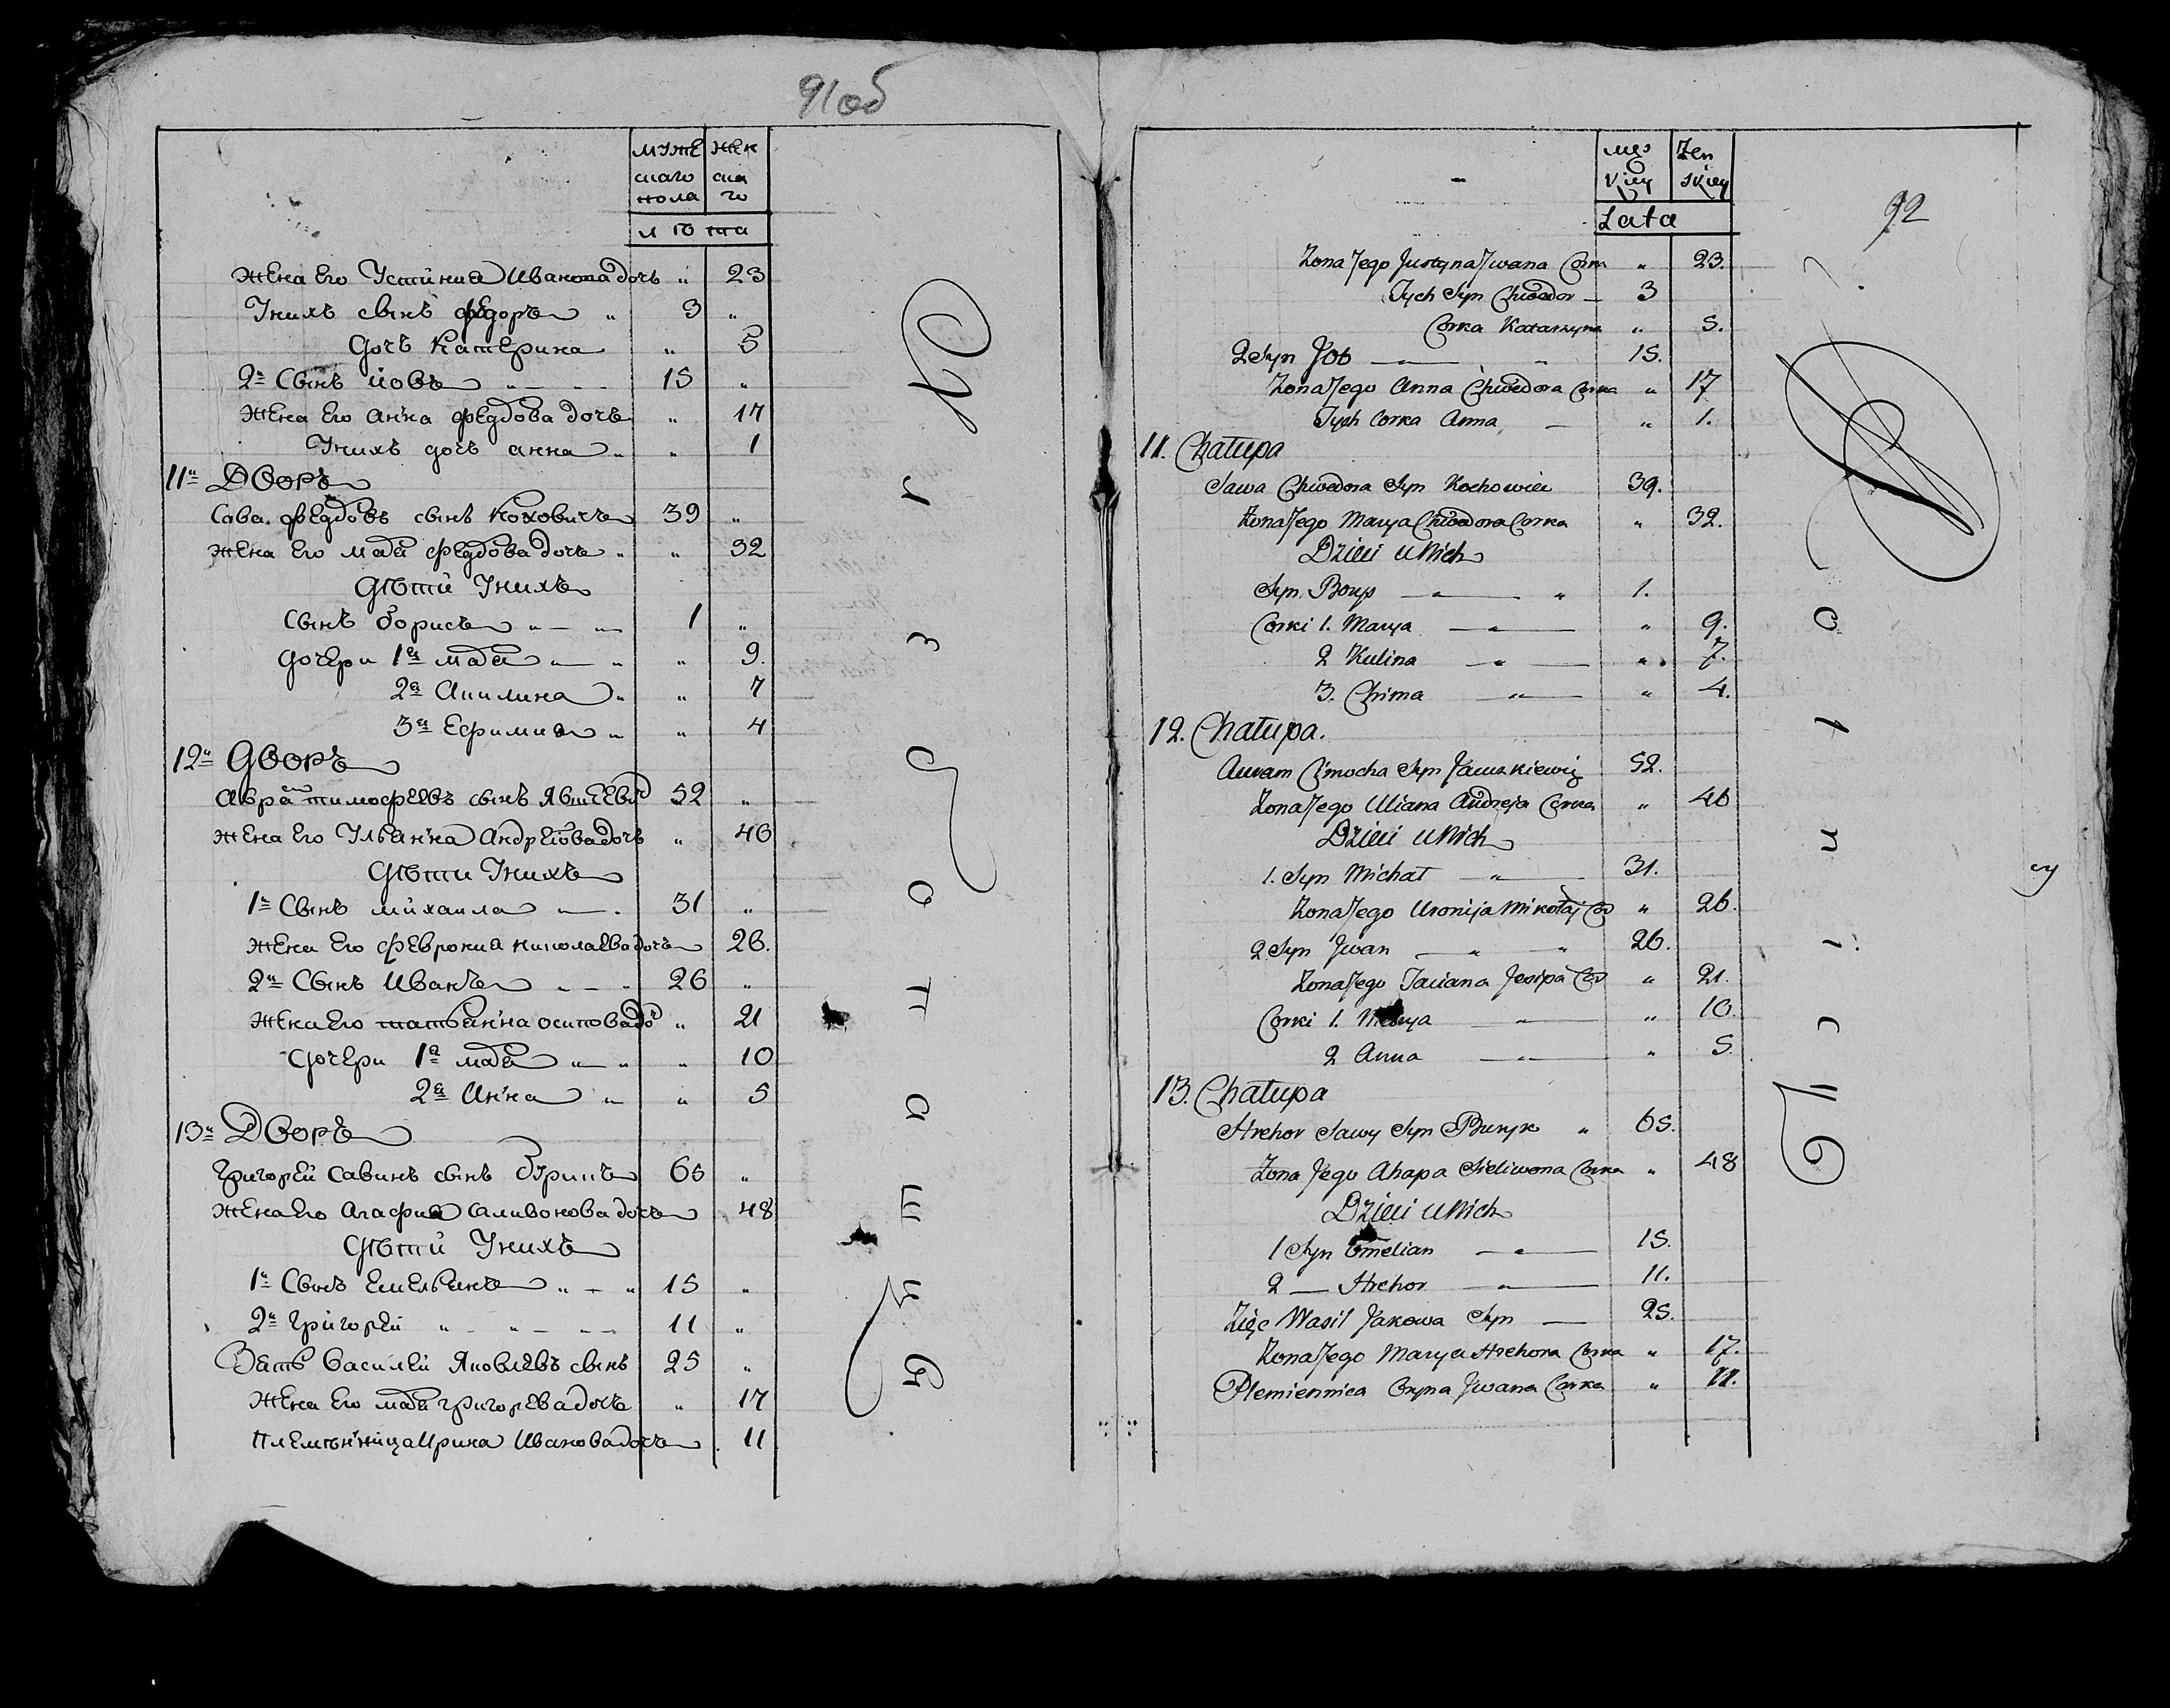 91об
муже жен
скаго ска
пола го
лѣта
жена его Устиниа Иванова дочь " 23
Унихъ сынъ Федоръ " 3 "
дочь Катерина " 5
2й Сынъ Иовъ 15 "
жена его анна Федорова дочь " 17
Унихъ дочь анна " 1
11й Дворъ
Сава Федоровъ сынъ Коховичъ 39 "
жена его марья Федорова дочь " 32
Дѣти Унихъ
Сынъ борисъ 1 "
дочери 1я марья " 9.
2я Акилина " 7
3я Ефимия " 4
12й Дворъ
аврам тимофеевъ сынъ 52 "
жена его Ульянна Андреева дочь " 46
Дѣти Унихъ
1й Сынъ михаила 31 "
жена его феврониа николаева дочь 26.
2й Сынъ Иванъ 26 "
жена его татьянна осипова до " 21
дочери 1я марья " 10
2я Анна " 5
13й Дворъ
григорей савинъ сынъ Бурикъ 65 "
жена его агафиа саливонова дочь 48
Дѣти Унихъ
1й Сынъ емельянъ 15 "
2й григорей 11 "
Зять василей яковлевъ сынъ 25 "
жена его марья григорева дочь " 17
племѣнница Ирина Иванова дочь 11
92
męs Żen
kiey skiey
Lata
Żona Jego Justyna Jwana Corka " 23.
Jych Syn Chwedor — 3
Corka Katarzyna " 5.
2 Syn Job — " 15.
Żona Jego Anna Chwedora Corka " 17
Jych Corka Anna — " 1.
11. Chałupa
Sawa Chwedora Syn Kochowicz 39.
Żona Jego Marya Chwedora Corka " 32.
Dzieci u Nich
Syn Borys — " 1.
Corki 1. Marya — " 9.
2 Kulina — " 7.
3. Chima — " 4.
12. Chałupa.
Awram Cimocha Syn Jauszkiewicz 52.
Żona Jego Uliana Andreja Corka " 46
Dzieci u Nich
1. Syn Michał — 31.
Żona Jego Uronija Mikołaj Cor " 26.
2 Syn Jwan — " 26.
Żona Jego Taciana Jesipa Cor " 21.
Corki 1. Marya — " 10.
2 Anna — " 5.
13. Chałupa
Hrehor Sawy Syn Buryk " 65.
Żona Jego Ahapa Sieliwona Corka " 48
Dzieci u Nich
1 Syn Emelian — 15.
2 — Hrehor — 11.
Zięć Wasil Jakowa Syn — 25.
Żona Jego Marya Hrehora Corka " 17.
Plemiennica Oryna Jwana Corka " 11.